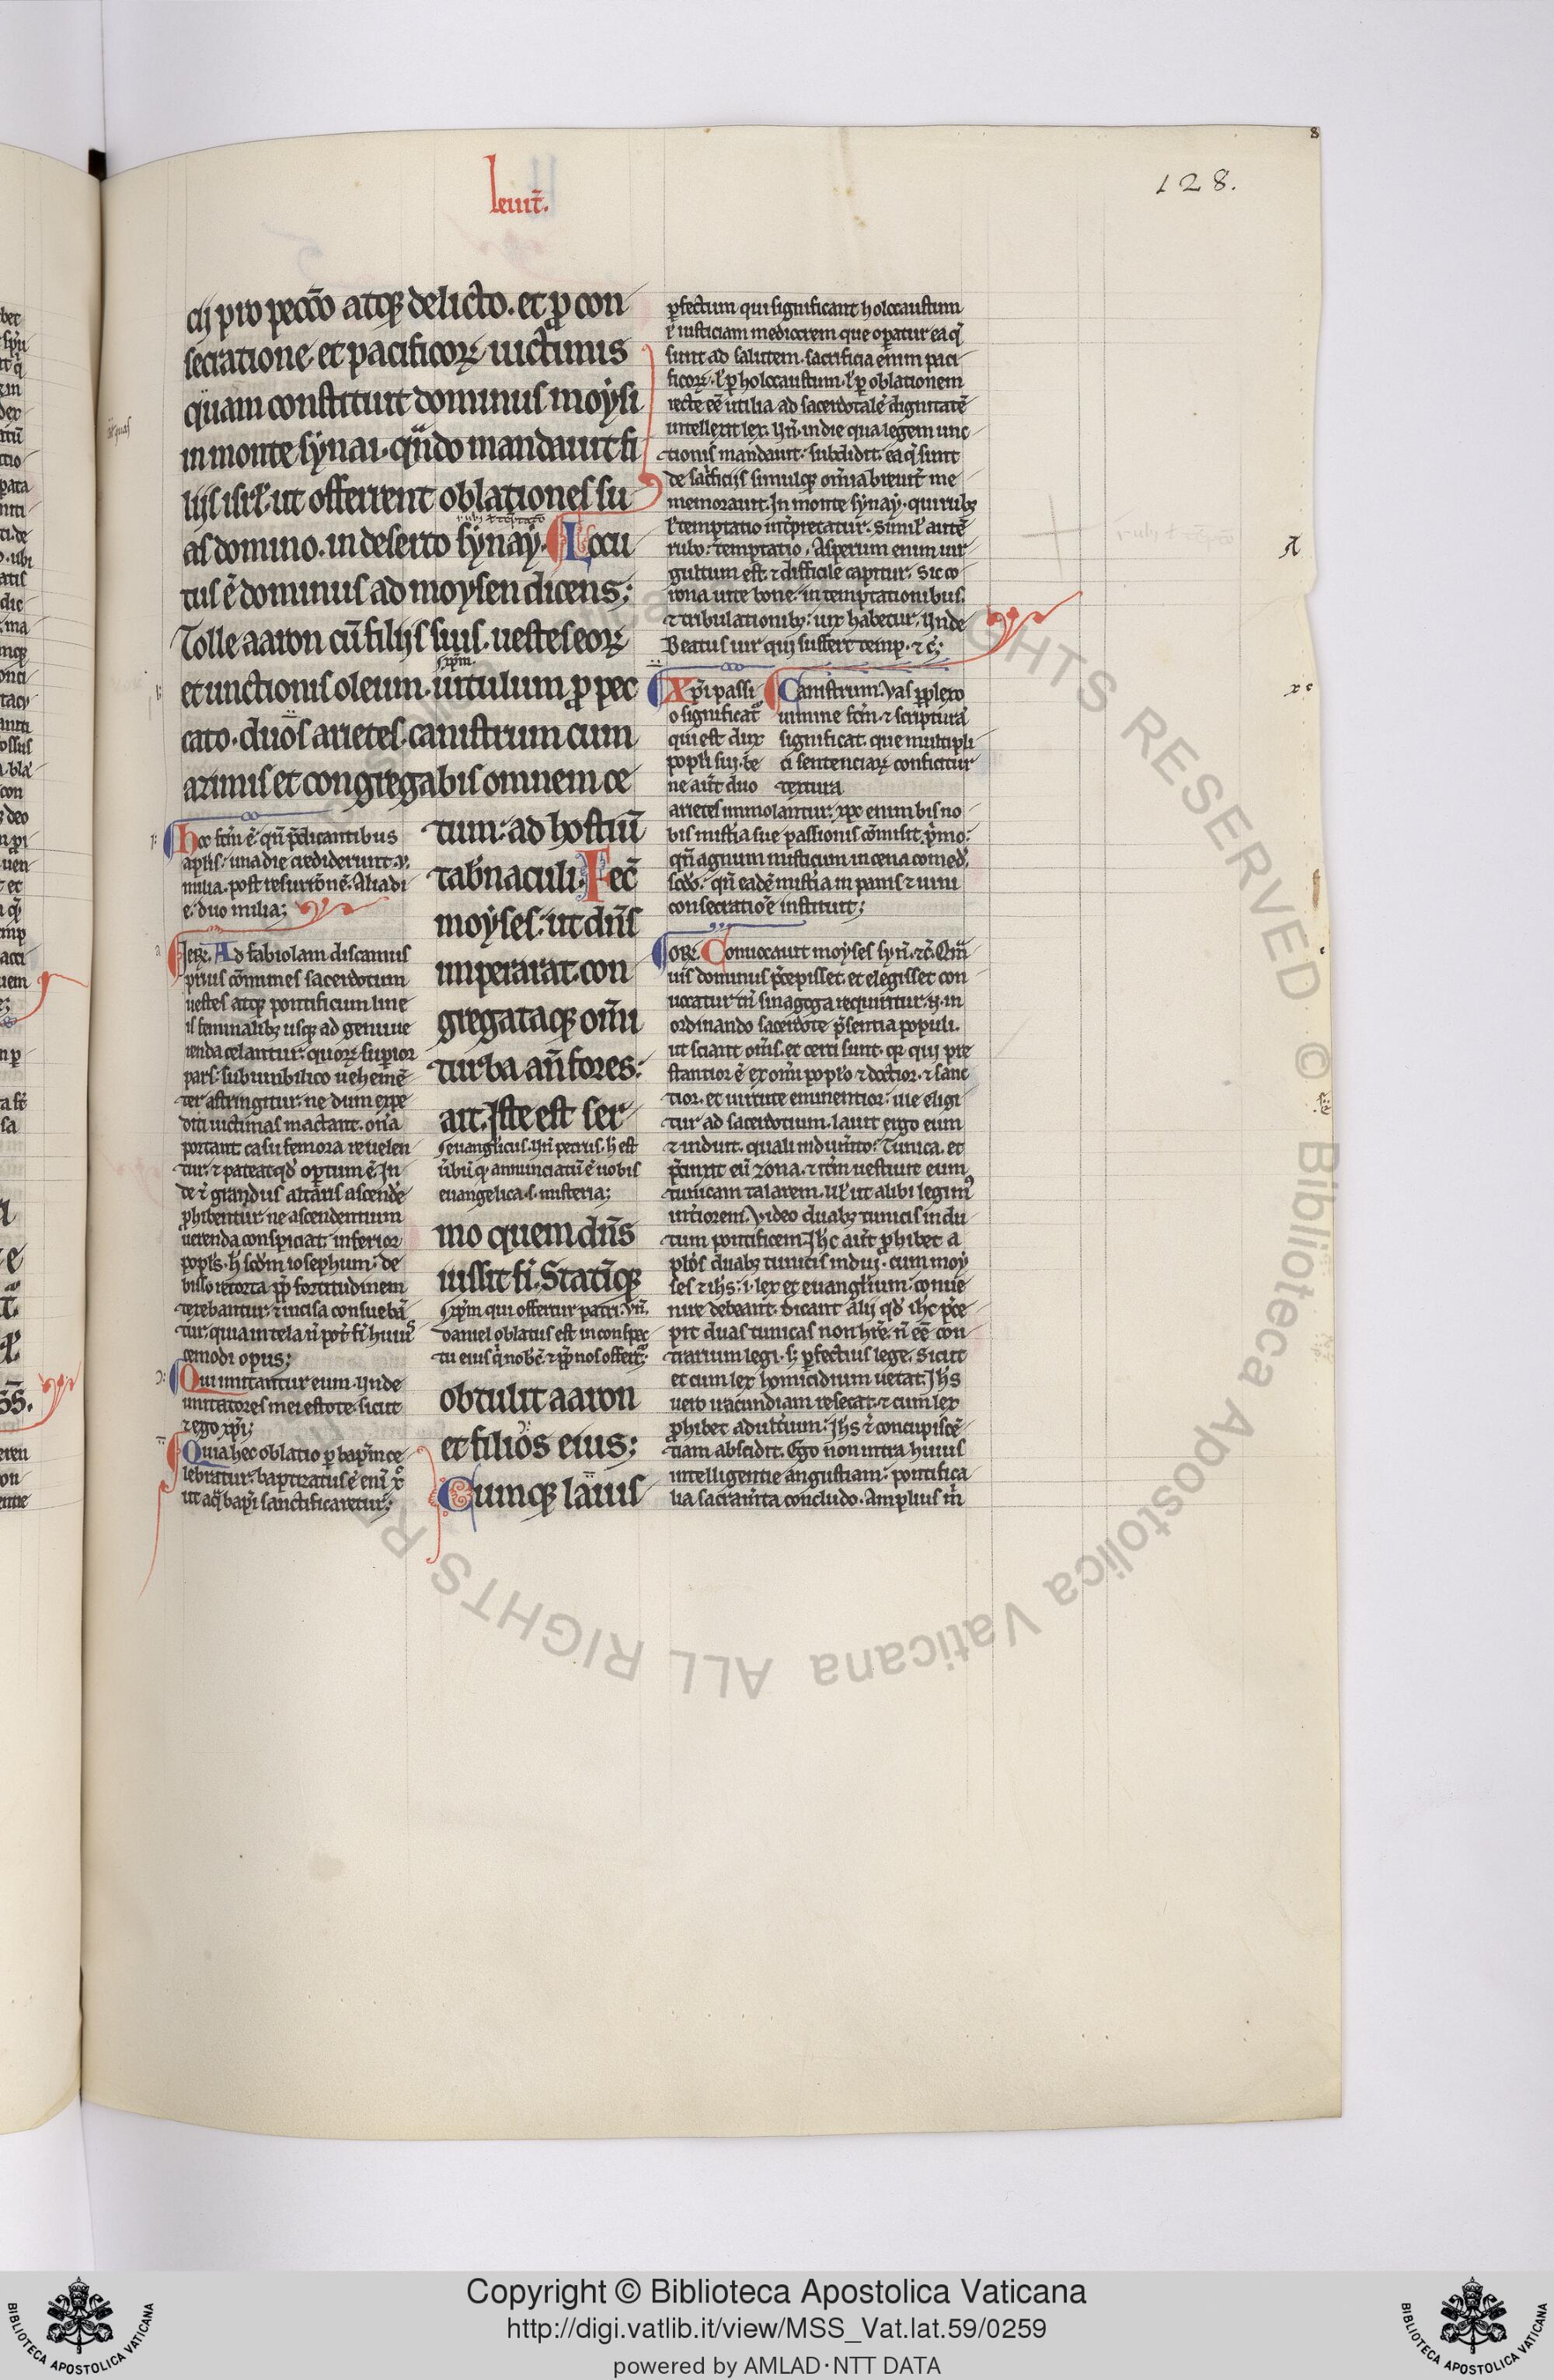 leuit̃.
128.
cij pro pecc̃o atq; delicto. et ꝓ con
secratione et pacificoꝝ uictimis
quam constituit dominus moẏsi
in monte sẏnai. qñdo mandauit fi
lijs isrl̃. ut offerrent oblationes su
as domino. in deserto sẏnaẏ. Locu
tus ẽ dominus ad moysen dicens;
Tolle aaron cũ filijs suis. uestes eoꝝ
xp̃m.
et unctionis oleum. uitulum ꝓ pec
cato. duos arietes. canistrum cum
azimis et congregabis omnem ce
tum: ad hostiũ
tab̃naculi. Fec̃
moẏses. ut dñs
imperarat. con
gregataq; om̃i
turba añ fores:
ait. Iste est ser
mo quem dñs
iussit fi̾. Statiq̃;
obtulit aaron
et filios eius;
Cumq; lauis
Hoc fc̃m ẽ. qñ p̃dicantibus
apl̃is. una die crediderunt. v.
milia. post resurr̃onẽ. Alia di
e. duo milia;
Ieꝝ. Ad fabiolam discamus
prius cõmunes sacerdotum
uestes atq; pontificum line
is feminalibꝫ usq; ad genu ue
renda celantur. quoꝝ superior
pars. sub umbilico uehemẽ
ter astringitur. ne dum expe
diti uictimas mactant. on̾a
portant casu femora reuelen
tur. ⁊ pateat qd̾ opertum ẽ. In
de ⁊ gradus altaris ascend̾e
ꝓhibentur. ne ascendentium
uerenda conspiciat inferior
popl̃s. h̾ scd̃m iosephum. de
bisso retorta ꝓp̃ fortitudinem
texebantur. ⁊ incisa consueba̾
tur. quia in tela ñ pot̾ fi̾ huiuꝰ
cemodi opus;
Qui imitantur eum. Vnde
imitatores mei estote. sicut
⁊ ego xp̃i;
Quia hec oblatio ꝑ bap̃m ce
lebratur. baptizatus ẽ eni̾ xꝰ
ut aq̃ bap̃i sanctificaretur;
s. euanglicus. Vñ petrus. h̾ est
ũbũ q̾ annunciatũ ẽ uobis
euangelica. s. misteria;
s. xp̃m qui offertur patri. Vñ.
daniel oblatus est in conspec
ꝑfectum qui significant holocaustum
ł iusticiam mediocrem que operatur ea q̃
sunt ad salutem. sacrificia enim paci
ficoꝝ. ł ꝑ holocaustum. ł ꝑ oblationem
recte eẽ utilia ad sacerdotalẽ dignitatẽ
intellexit lex. Vñ. in die qua legem unc
tionis mandauit. subdidit. ea q̃ sunt
de sac̃ficijs simulq; om̃ia breuit̃ me
memorauit. In monte sẏnaẏ. qui rubꝫ
ł temptatio int̃pretatur. Simil̃ autẽ
rubo: temptatio. Asperum enim uir
gultum est. ⁊ difficile capitur. Sic co
rona uite bone. in temptationibus
⁊ tribulationibꝫ. uix habetur. Vnde
Beatus uir qui suffert temp. ⁊ c̃;
Xp̃i passi
o significatᷣ
qui est dux
popl̃i sui. be
ne aut̃ duo
Canistrum. Vas ꝑplexo
uimine fc̃m. ⁊ scripturã
significat. que multipli
ci sentenciaꝝ conficitur
textura
arietes immolantur. xp̃c enim bis no
bis mist̾ia sue passionis cõmisit. p̾mo.
qñ agnum misticum in cena comed̾.
scd̾o. qñ eadẽ mist̾ia in panis ⁊ uini
consecratiõe instituit;
ORI. Conuocauit moyses syñ. ⁊c̃. Qm̃
uis dominus p̃cepisset. et elegisset con
uocatur tñ sinagoga. requiritur. ⁊. in
ordinando sacerdote p̃sentia populi.
ut sciant om̃s. et certi sunt. q̾ qui pre
stantior ẽ ex om̃i pop̃lo ⁊ doctior. ⁊ sanc
tior. et uirtute eminentior: ille eligi
tur ad sacerdotium. lauit ergo eum
⁊ induit. quali indum̃to? Tunica. et
p̃cinxit eũ zona. ⁊ it̾m uestiuit eum
tunicam talarem. ul̃ ut alibi legimꝰ
int̾iorem. Video duabꝫ tunicis indu
tum pontificem. Ih̃c aut̃ ꝓhibet a
pl̃os duabꝫ tunicis indui. cum moy
ses ⁊ ih̃s. i. lex et euanglium. conue
nire debeant. dicant alij qd̾ ih̃c p̃ce
pit duas tunicas non hr̃e. ñ eẽ con
trarium legi. sꝫ ꝑfectius lege. Sicut
et cum lex homicidium uetat. Ih̃s
uero iracundiam resecat. ⁊ cum lex
ꝓhibet adult̾ium. Ih̃s ⁊ concupiscẽ
tiam abscidit. Ego non intra huius
intelligentie angustiam. pontifica
lia sacram̃ta concludo. Amplius m̃
Copyright © Biblioteca Apostolica Vaticana
http://digi.vatlib.it/view/MSS_Vat.lat.59/0259
powered by AMLAD·NTT DATA